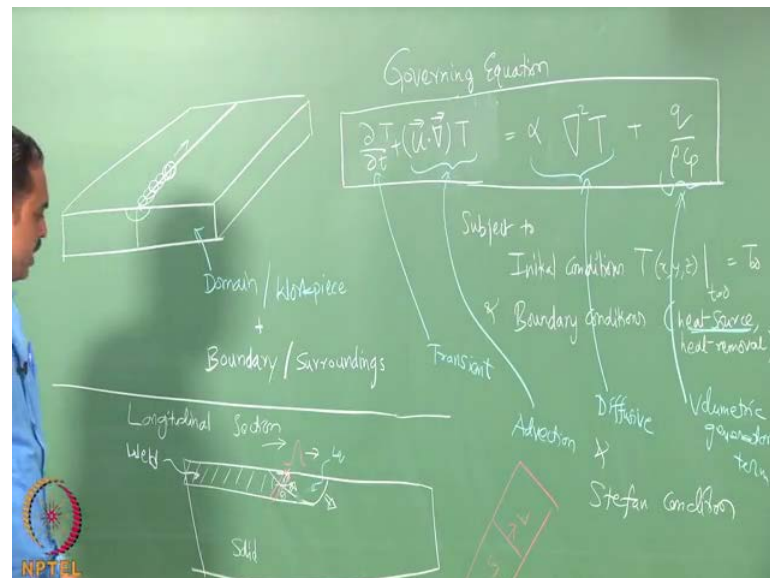 Governing Equation
∂T/∂t + (u⃗·∇⃗)T = α ∇²T + q/ρCp
Subject to
Initial conditions T(x,y,z)|t=0 = T∞
& Boundary conditions (heat source,
heat-removal,
Domain / Workpiece
+
Boundary / Surroundings
Transient
Advection
Diffusive
Volumetric
term
&
Stefan condition
Longitidinal Section
Weld
Solid
NPTEL